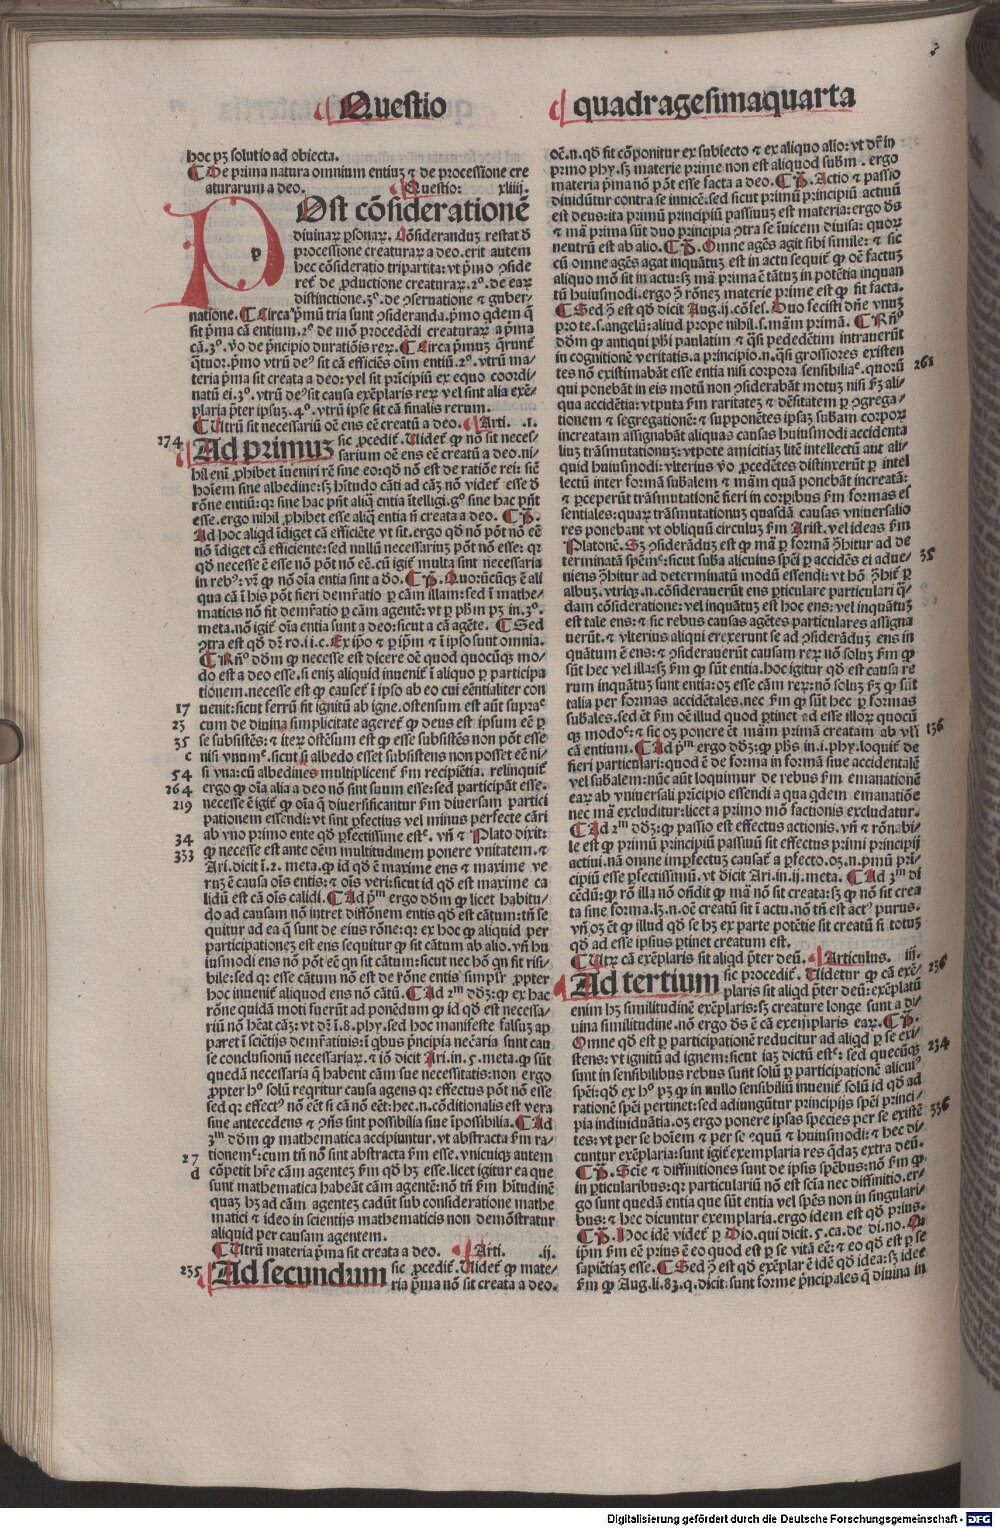 Questio
quadragesimaquarta
hoc pꝫ solutio ad obiecta.
¶ De prima natura omnium entiuꝫ ⁊ de processione cre
aturarum a deo. ¶ Questio: xliiij.
POst cōsiderationē
diuinaꝝ ꝑsonaꝝ. Cōsideranduꝫ restat d̄
processione creaturaꝝ a deo. erit autem
hec cōsideratio tripartita: vt p̄mo ꝯside
ret᷑ de ꝓductione creaturaꝝ. 2º. de eaꝝ
distinctione. 3º. de ꝯseruatione ⁊ guber
natione. ¶ Circa p̄mū tria sunt ꝯsideranda. p̄mo qdem q̄
sit p̄ma cā entium. 2º de mō procedēdi creaturaꝝ a p̄ma
cā. 3º. v̄o de p̄ncipio duratiōis reꝝ. ¶ Circa p̄muꝫ q̄runt᷑
q̄tuor. p̄mo vtrū deꝰ sit cā efficiēs oīm entiū. 2º. vtrū ma/
teria p̄ma sit creata a deo: vel sit p̄ricipiū ex equo coordi/
natū ei. 3º. vtrū deꝰ sit causa exēplaris reꝝ vel sint alia exē/
plaria p̄ter ipsuꝫ. 4º. vtrū ipse sit cā finalis rerum.
¶ Utrū sit necessariū oē ens eē creatū a deo. ¶ Arti. .i.
274
Ad primuꝫ sic ꝓcedit᷑. Uidet᷑ ꝙ nō sit neces/
sarium oē ens eē creatū a deo. ni/
hil enī ꝓhibet īueniri rē sine eo: qd̄ nō est de ratiōe rei: sic̄
hoīem sine albedine: sꝫ hītudo cāti ad cāꝫ nō videt᷑ esse d̄
rōne entiū: qꝛ sine hac pn̄t aliq̄ entia ītelligi. gº sine hac pn̄t
esse. ergo nihil ꝓhibet esse aliq̄ entia n̄ creata a deo. ¶ P̄.
Ad hoc aliqd īdiget cā efficiēte vt sit. ergo qd̄ nō pōt nō eē
nō īdiget cā efficiente: sed nullū necessariuꝫ pōt nō esse: qꝛ
qd̄ necesse ē esse nō pōt nō eē. cū igit᷑ multa sint necessaria
in rebꝰ: vr̄ ꝙ nō oīa entia sint a d̄o. ¶ P̄. Quorūcūqꝫ ē ali
qua cā ī his pōt fieri demr̄atio ꝑ cām illam: sed ī mathe/
maticis nō fit demr̄atio ꝑ cām agentē: vt ꝑ ph̄m pꝫ in. 3º.
meta. nō igit᷑ oīa entia sunt a deo: sicut a cā agēte. ¶ Sed
ꝯtra est qd̄ dꝛ ro. ii. c. Ex ip̄o ⁊ ꝑ ip̄m ⁊ ī ipso sunt omnia.
¶ Rn̄º dd̄m ꝙ necesse est dicere oē quod quocūqꝫ mo/
do est a deo esse. si eniꝫ aliquid inuenit᷑ ī aliquo ꝑ participa
tionem. necesse est ꝙ causet᷑ ī ipso ab eo cui eēntialiter con
17
uenit: sicut ferrū fit ignitū ab igne. ostensum est aūt supraᶜ
23
cum de diuina simplicitate ageret᷑ ꝙ deus est ipsum eē ꝑ
35
se subsistēs: ⁊ iteꝝ ostēsum est ꝙ esse subsistēs non pōt esse
c
nisi vnumᶜ. sicut si albedo esset subsistens non posset eē ni/
54
si vna: cū albedines multiplicent᷑ ẜm recipiētia. relinquit᷑
264
ergo ꝙ oīa alia a deo nō sint suum esse: sed participāt esse.
219
necesse ē igit᷑ ꝙ oīa q̄ diuersificantur ẜm diuersam partici
pationem essendi: vt sint ꝑfectius vel minus perfecte cāri
34
ab vno primo ente qd̄ ꝑfectissime estᶠ. vn̄ ⁊ Plato dixit:
333
ꝙ necesse est ante oēm multitudinem ponere vnitatem. ⁊
Ari. dicit ī. 2. meta. ꝙ id qd̄ ē maxime ens ⁊ maxime ve
ruꝫ ē causa oīs entis: ⁊ oīs veri: sicut id qd̄ est maxime ca
lidū est cā oīs calidi. ¶ Ad p̄ᵐ ergo dd̄m ꝙ licet habitu/
do ad causam nō intret diffōnem entis qd̄ est cātum: tn̄ se
quitur ad ea q̄ sunt de eius rōne: qꝛ ex hoc ꝙ aliquid per
participationeꝫ est ens sequitur ꝙ sit cātum ab alio. vn̄ hu
iusmodi ens nō pōt eē qn sit cātum: sicut nec hō qn̄ fit risi/
bile: sed qꝛ esse cātum nō est de rōne entis simplr̄ ꝓpter
hoc inuenit᷑ aliquod ens nō cātū. ¶ Ad 2ᵐ dd̄ꝫ: ꝙ ex hac
rōne quidā moti fuerūt ad ponēdum ꝙ id qd̄ est necessa/
riū nō hēat cāꝫ: vt dꝛ ī. 8. phy. sed hoc manifeste falsuꝫ ap
paret ī sciētijs demr̄atiuis: ī qbus p̄ncipia necāria sunt cau
se conclusionū necessariaꝝ. ⁊ iō dicit Ari. in. 5. meta. ꝙ sūt
quedā necessaria q̄ habent cām sue necessitatis: non ergo
ꝓpter hº solū reqritur causa agens qꝛ effectus pōt nō esse
sed qꝛ effectꝰ nō eēt si cā nō eēt: hec. n. cōditionalis est vera
siue antecedens ⁊ ꝯn̄s sint possibilia siue īpossibilia. ¶ Ad
3ᵐ dd̄m ꝙ mathematica accipiuntur. vt abstracta ẜm ra/
27
tionemᶜ: cum tn̄ nō sint abstracta ẜm esse. vnicuiqꝫ autem
d
cōpetit hr̄e cām agenteꝫ ẜm qd̄ hꝫ esse. licet igitur ea que
sunt mathematica habeāt cām agentē: nō tn̄ ẜm hītudinē
quaꝫ hꝫ ad cām agenteꝫ cadūt sub consideratione mathe
matici ⁊ ideo in scientijs mathematicis non demōstratur
aliquid per causam agentem.
¶ Utrū materia p̄ma sit creata a deo. ¶ Arti. .ij.
235
Ad secundum sic ꝓcedit᷑. Uidet᷑ ꝙ mate/
ria p̄ma nō sit creata a deo.
oē. n. qd̄ fit cōponitur ex subiecto ⁊ ex aliquo alio: vt dr̄ in
primo phy. sꝫ materie prime non est aliquod subm̄. ergo
materia p̄ma nō pōt esse facta a deo. ¶ P̄. Actio ⁊ passio
diuidūtur contra se inuicē. sed sicut primū principiū actiuū
est deus: ita primū principiū passiuuꝫ est materia: ergo ds̄
⁊ mā prima sūt duo principia ꝯtra se īuicem diuisa: quoꝝ
neutrū est ab alio. ¶ P̄. Omne agēs agit sibi simile: ⁊ sic
cū omne agēs agat inquātuꝫ est in actu sequit᷑ ꝙ oē factuꝫ
aliquo mō sit in actu: sꝫ mā prima ē tātuꝫ in potētia inquan
tū huiusmodi. ergo ꝯ̄ rōneꝫ materie prime est ꝙ sit facta.
¶ Sed ꝯ̄ est qd̄ dicit Aug. ij. cōfes. Duo fecisti dn̄e vnuꝫ
pro te. s. angelū: aliud prope nihil. s. mām primā. ¶ Rn̄º
dd̄m ꝙ antiqui ph̄i paulatim ⁊ q̄si pedetētim intrauerūt
in cognitionē veritatis. a principio. n. q̄si grossiores existen
261
tes nō existimabāt esse entia nisi corpora sensibiliaᶜ. quorū
qui ponebāt in eis motū non ꝯsiderabāt motuꝫ nisi ẜꝫ ali/
qua accidētia: vtputa ẜm raritateꝫ ⁊ dēsitatem ꝑ ꝯgrega/
tionem ⁊ segregationē: ⁊ supponētes ipsaꝫ sub̄am corpoꝝ
increatam assignabāt aliquas causas huiusmodi accidenta
liuꝫ trāsmutationuꝫ: vtpote amicitiaꝫ litē intellectū aut ali/
quid huiusmodi: vlterius v̄o ꝓcedētes distinxerūt ꝑ intel
lectū inter formā sub̄alem ⁊ mām quā ponebāt increatā:
⁊ ꝑceperūt trāsmutationē fieri in corpibus ẜm formas es
sentiales: quaꝝ trāsmutationuꝫ quasdā causas vniuersalio
res ponebant vt obliquū circuluꝫ ẜm Arist. vel ideas ẜm
Platonē. Sꝫ ꝯsiderāduꝫ est ꝙ mā ꝑ formā ꝯ̄hitur ad de
35
terminatā spēmᶜ: sicut sub̄a alicuius spēi ꝑ accidēs ei adue/
niens ꝯ̄hitur ad determinatū modū essendi: vt hō ꝯ̄hit᷑ ꝑ
albuꝫ. vtriqꝫ. n. cōsiderauerūt ens ꝑticulare particulari q̄/
dam cōsideratione: vel inquātuꝫ est hoc ens: vel inquātuꝫ
est tale ens: ⁊ sic rebus causas agētes particulares assigna
uerūt. ⁊ vlterius aliqui erexerunt se ad ꝯsiderāduꝫ ens in
quātum ē ens: ⁊ ꝯsiderauerūt causam reꝝ nō soluꝫ ẜm ꝙ
sūt hec vel illa: sꝫ ẜm ꝙ sūt entia. hoc igitur qd̄ est causa re
rum inquātuꝫ sunt entia: oꝫ esse cām reꝝ: nō soluꝫ ẜꝫ ꝙ sūt
talia per formas accidētales. nec ẜm ꝙ sūt hec ꝑ formas
sub̄ales. sed ēt ẜm oē illud quod ꝑtinet ad esse illoꝝ quocū
136
qꝫ modoᶜ: ⁊ sic oꝫ ponere ēt mām primā creatam ab vl̄i
cā entium. ¶ Ad p̄ᵐ ergo dd̄ꝫ: ꝙ ph̄s in. i. phy. loquit᷑ de
fieri particulari: quod ē de forma in formā siue accidentalē
vel sub̄alem: nūc aūt loquimur de rebus ẜm emanationē
eaꝝ ab vniuersali p̄ricipio essendi a qua qdem emanatiōe
nec mā excluditur: licet a primo mō factionis excludatur.
¶ Ad 2ᵐ dd̄ꝫ: ꝙ passio est effectus actionis. vn̄ ⁊ rōnabi/
le est ꝙ primū principiū passiuū sit effectus primi principij
actiui. nā omne imperfectuꝫ causat᷑ a ꝑfecto. oꝫ. n. p̄mū pri/
cipiū esse ꝑfectissimū. vt dicit Ari. in. ij. meta. ¶ Ad 3ᵐ di
cēdū: ꝙ rō illa nō on̄dit ꝙ mā nō sit creata: sꝫ ꝙ nō sit crea
ta sine forma. lꝫ. n. oē creatū sit ī actu. nō tn̄ est actꝰ purus.
vn̄ oꝫ ēt ꝙ illud qd̄ se hꝫ ex parte potētie sit creatū si totuꝫ
qd̄ ad esse ipsius ꝑtinet creatum est.
¶ Utrꝫ cā exēplaris sit aliqd p̄ter deū. ¶ Articulus. iij.
236
Ad tertium sic procedit᷑. Uidetur ꝙ cā exē/
plaris sit aliqd p̄ter deū: exēplatū
enim hꝫ similitudinē exēplaris: sꝫ creature longe sunt a di/
uina similitudine. nō ergo ds̄ ē cā exemplaris eaꝝ. ¶ P̄.
Omne qd̄ est ꝑ participationē reducitur ad aliqd ꝑ se exi/
234
stens: vt ignitū ad ignem: sicut iaꝫ dictū estᶜ: sed quecūqꝫ
sunt in sensibilibus rebus sunt solū ꝑ participationē alicuiꝰ
spēi: qd̄ ex hº pꝫ ꝙ in nullo sensibiliū inuenit᷑ solū id qd̄ ad
rationē spēi pertinet: sed adiungūtur principijs spēi princi/
336
pia indiuiduātia. oꝫ ergo ponere ipsas species per se existē
tes: vt per se hoīem ⁊ per se equū ⁊ huiusmodi: ⁊ hec di/
cuntur exēplaria: sunt igit᷑ exemplaria res q̄daꝫ extra deū.
¶ P̄. Scīe ⁊ diffinitiones sunt de ipsis spēbus: nō ẜm ꝙ
in ꝑticularibus: qꝛ particulariū nō est scīa nec diffinitio. er/
go sunt quedā entia que sūt entia vel spēs non in singulari/
bus: ⁊ hec dicuntur exemplaria. ergo idem est qd̄ prius.
¶ P̄. Hoc idē videt᷑ ꝑ Dio. qui dicit. 5. ca. de di. no.
ip̄m ẜm eē prius ē eo quod est ꝑ se vitā eē: ⁊ eo qd̄ est ꝑ se
sapiētiaꝫ esse. ¶ Sed ꝯ̄ est qd̄ exēplar ē idē qd̄ idea: sꝫ idee
ẜm ꝙ Aug. li. 83. q. dicit: sunt forme p̄ncipales q̄ diuina in
Digitalisierung gefördert durch die Deutsche Forschungsgemeinschaft - DFG